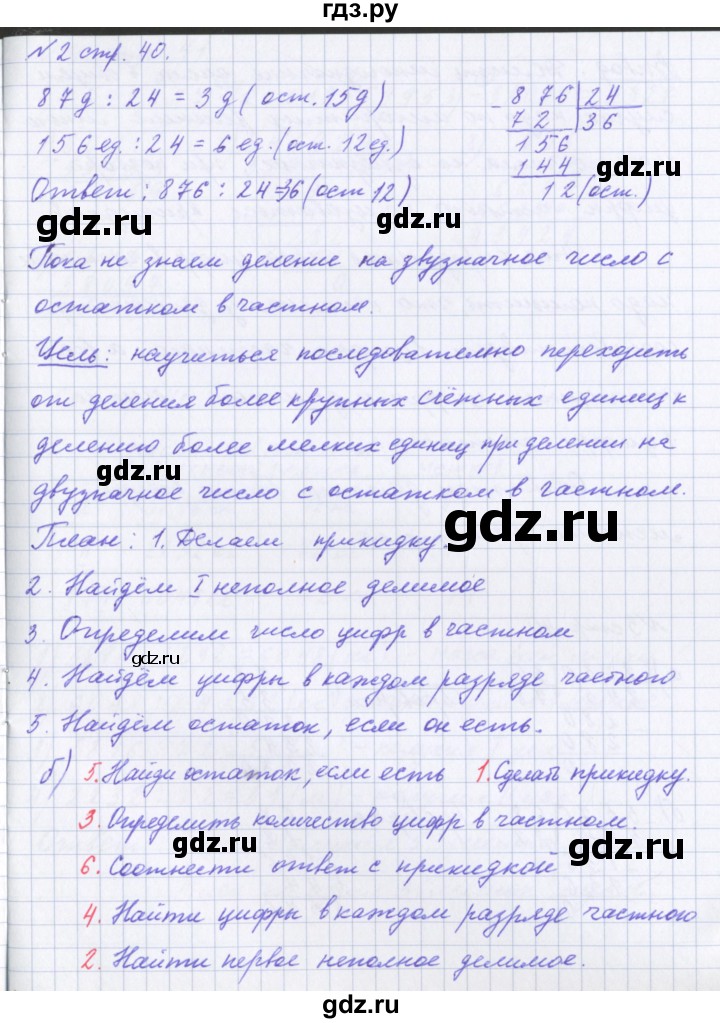 гдз.ру
№2 стр. 40.
87д : 24 = 3д (ост. 15д)
156ед. : 24 = 6 ед. (ост. 12ед.)
Ответ: 876 : 24=36 (ост 12)
- 876 | 24
72 36
156
144
12 (ост.)
gdz.ru
gdz.ru
Пока не знаем деление на двузначное число с
остатком в частном.
gdz.ru
Цель: научиться последовательно переходить
от деления более крупных счётных единиц к
делению более мелких единиц при делении на
gdz.ru
двузначное число с остатком в частном.
gdz.ru
План: 1. Делаем прикидку.
2. Найдём I неполное делимое
3. Определим число цифр в частном
gdz.ru
4. Найдём цифры в каждом разряде частного
5. Найдём остаток, если он есть.
б) 5. Найди остаток, если есть 1. Сделать прикидку.
3. Определить количество цифр в частном.
gdz.ru
gdz.ru
6. Соотнести ответ с прикидкой
4. Найти цифры в каждом разряде частного
2. Найти первое неполное делимое.
gdz.ru